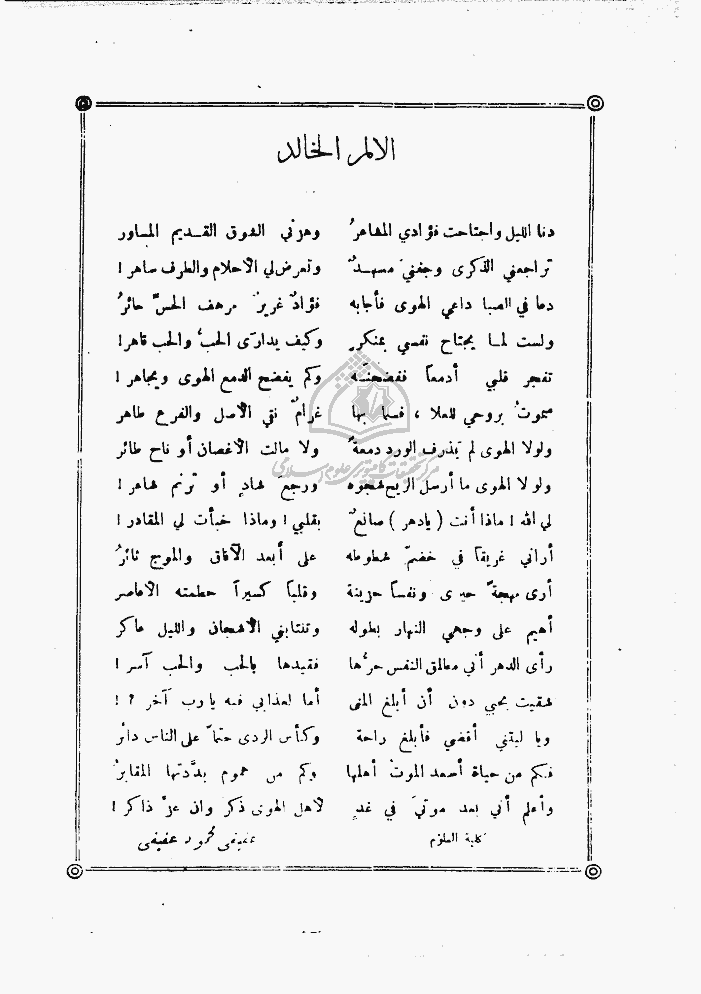 الألم الخالد
دنا الليل واجتاحت فؤادي المشاعرُ وهزني الشوق القديم المساور
تراجعني الذكرى وجفنيَ مسهدٌ وتعرض لي الأحلام والطرف ساهر !
دعا في الصبا داعي الهوى فأجابه فؤادٌ غريرٌ مرهف الحسّ حائرُ
ولست لما يجتاح نفسي بمنكرٍ وكيف يدارَى الحبُ والحب قاهر !
تفجر قلبي أدمعاً ففضحنَه وكم يفضح الدمع الهوى ويجاهر !
سموتُ بروحي للعلا ، فسما بها غرامٌ نقي الأصل والفرع طاهر
ولولا الهوى لم يَذرف الورد دمعةً ولا مالت الأغصان أو ناح طائر
ولولا الهوى ما أرسل الريح شجوه ورجعَ شادٍ أو ترنم شاعر !
لي الله ! ماذا أنت ( يادهر ) صانعٌ بقلبي ! وماذا خبأت لي المقادر !
أراني غريقاً في خضمّ شطوطه على أبعد الآفاق والموج ثائرُ
أرى مهجةً حيرى ونفساً حزينة وقلباً كسيراً حطمته الأعاصر
أهيم على وجهي النهار بطوله وتنتابني الأشجان والليل عاكر
رأى الدهر أني مطلق النفس حرُّها فقيدها بالحب والحب آسر !
شقيت بحبي دون أن أبلغ المنى أما لعذابي فيه يارب آخر ؟ !
ويا ليتني أقضي فأبلغ راحة وكأس الردى حتماً على الناس دائر
فكم من حياة أسعد الموتُ أهلها وكم من هموم بدَّدتها المقابرُ
وأعلم أني بعد موتيَ في غدٍ لأهل الهوى ذكر وان عزَّ ذاكر !
كلية العلوم عفيفي محمود عفيفي
مرکز تحقیقات کامپیوتری علوم اسلامی